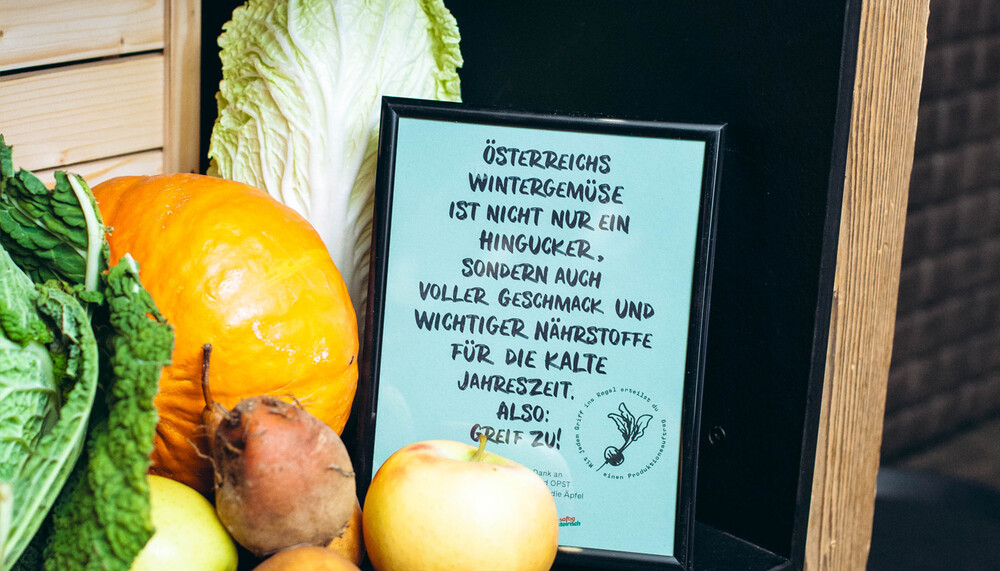 ÖSTERREICHS
WINTERGEMÜSE
IST NICHT NUR EIN
HINGUCKER,
SONDERN AUCH
VOLLER GESCHMACK UND
WICHTIGER NÄHRSTOFFE
FÜR DIE KALTE
JAHRESZEIT.
ALSO:
GREIF ZU!
Mit jedem Griff ins Regal erteilst du
einen Produktionsauftrag
Dank an
OPST
die Äpfel